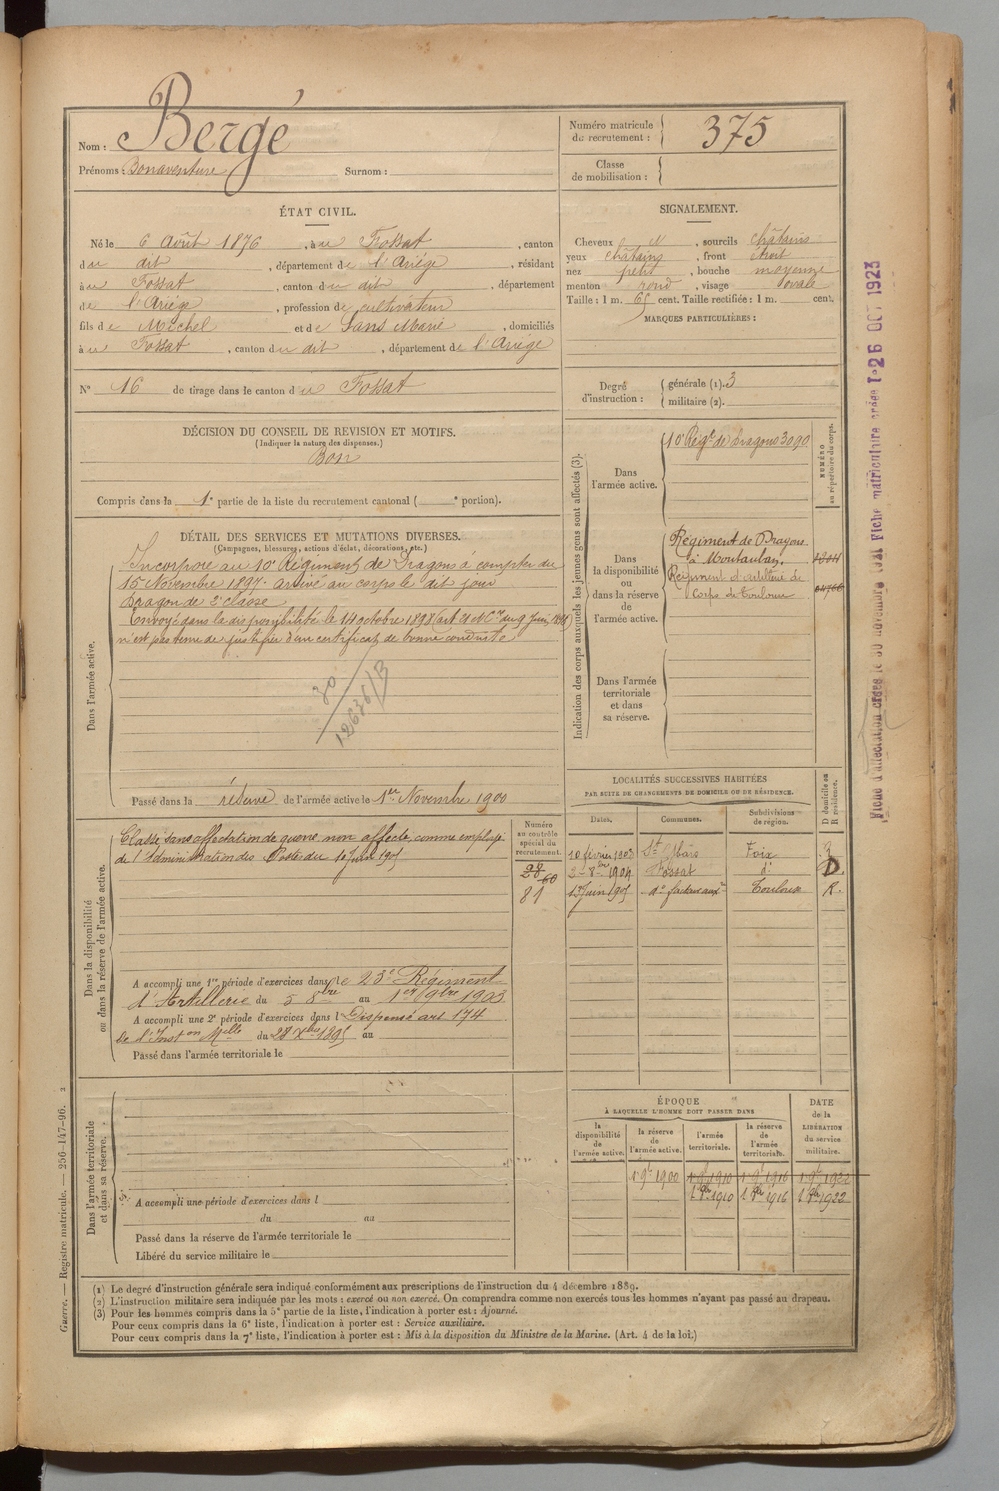 Nom : Bergé
Prénoms : Bonaventure Surnom :
Numéro matricule du recrutement : 375
Classe de mobilisation :
ÉTAT CIVIL.
Né le 6 Août 1876, à u Fossat, canton
du dit, département de l'Ariège, résidant
à u Fossat, canton du dit, département
de l'Ariège, profession de cultivateur
fils de Michel et de Sans Marie, domiciliés
à u Fossat, canton du dit, département de l'Ariège
N° 16 de tirage dans le canton du Fossat
DÉCISION DU CONSEIL DE REVISION ET MOTIFS.
(Indiquer la nature des dispenses.)
Bon
Compris dans la 1e partie de la liste du recrutement cantonal ( e portion).
SIGNALEMENT.
Cheveux , sourcils châtains
yeux châtains, front étroit
nez petit, bouche moyenne
menton rond, visage ovale
Taille : 1 m. 65 cent. Taille rectifiée : 1 m. cent.
MARQUES PARTICULIÈRES :
Degré d'instruction : générale (1). 3
militaire (2).
DÉTAIL DES SERVICES ET MUTATIONS DIVERSES.
(Campagnes, blessures, actions d'éclat, décorations, etc.)
Dans l'armée active.
Incorporé au 10e Régiment de Dragons à compter du
15 Novembre 1897. arrivé au corps le dit jour
Dragon de 2e classe
Envoyé dans la disponibilité le 14 octobre 1898
n'est pas tenu de justifier d'un certificat de bonne conduite
30
12636/B
Passé dans la réserve de l'armée active le 1er Novembre 1900
Indication des corps auxquels les jeunes gens sont affectés (3).
NUMÉRO au répertoire du corps.
Dans l'armée active.
10e Régt de Dragons 3090
Dans la disponibilité ou dans la réserve de l'armée active.
Régiment de Dragons
à Montauban.
Régiment d'artillerie de
Corps de Toulouse
Dans l'armée territoriale et dans sa réserve.
Dans la disponibilité ou dans la réserve de l'armée active.
Classé sans affectation de guerre non affecté, comme employé
de l'Administration des Postes du 10 juin 1905
Numéro au contrôle spécial du recrutement.
28
60
81
A accompli une 1re période d'exercices dans le 23e Régiment
d'Artillerie du 5 8bre au 1er 9bre 1903
A accompli une 2e période d'exercices dans l Dispensé art 174
de l'Inston Mlle du 28 Xbre 1895 au
Passé dans l'armée territoriale le
LOCALITÉS SUCCESSIVES HABITÉES
PAR SUITE DE CHANGEMENTS DE DOMICILE OU DE RÉSIDENCE.
Dates. Communes. Subdivisions de région. D domicile ou R résidence.
10 février 1903 St Ybars Foix
2 8bre 1904 Fossat d° D
Toulouse R.
Dans l'armée territoriale et dans sa réserve.
A accompli une période d'exercices dans l
du au
Passé dans la réserve de l'armée territoriale le
Libéré du service militaire le
ÉPOQUE
À LAQUELLE L'HOMME DOIT PASSER DANS
la disponibilité de l'armée active. la réserve de l'armée active. l'armée territoriale. la réserve de l'armée territoriale. DATE de la LIBÉRATION du service militaire.
1er 9bre 1900 1er 9bre 1910 1er 9bre 1916 1er 9bre 1922
1er 8bre 1910 1er 8bre 1916 1er 8bre 1922
(1) Le degré d'instruction générale sera indiqué conformément aux prescriptions de l'instruction du 4 décembre 1889.
(2) L'instruction militaire sera indiquée par les mots : exercé ou non exercé. On comprendra comme non exercés tous les hommes n'ayant pas passé au drapeau.
(3) Pour les hommes compris dans la 5e partie de la liste, l'indication à porter est : Ajourné.
Pour ceux compris dans la 6e liste, l'indication à porter est : Service auxiliaire.
Pour ceux compris dans la 7e liste, l'indication à porter est : Mis à la disposition du Ministre de la Marine. (Art. 4 de la loi.)
Guerre. — Registre matricule. — 256-147-96. 2
Fiche d'affectation créée le 30 novembre Fiche matriculaire créée le 26 OCT 1923